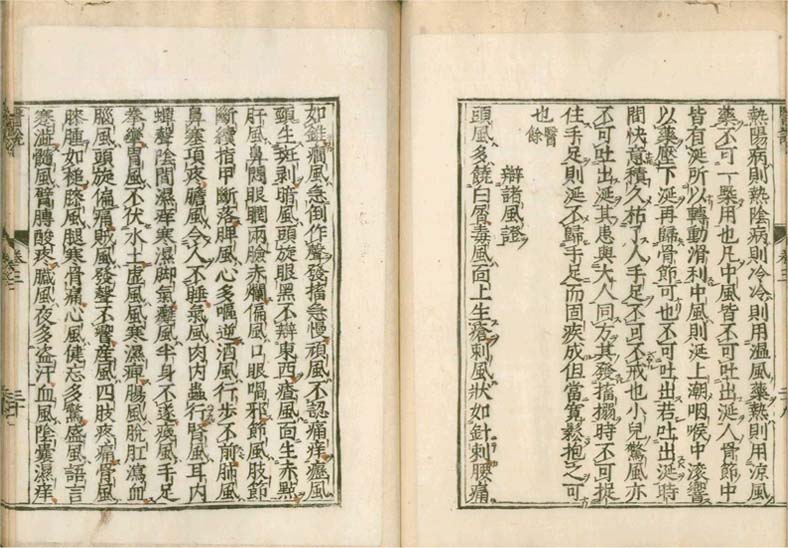 熱陽病則熱陰病則冷冷則用溫風藥熱則用涼風
藥不可一槩用也凡中風皆不可吐出涎人骨節中
皆有涎所以轉動滑利中風則涎上潮咽喉中滚響
以藥壓下涎再歸骨節可也不可吐出若吐出涎時
間快意積久枯了人手足不可不戒也小兒驚風亦
不可吐出涎其患與大人同方其發搐搦時不可捉
住手足則涎不歸手足而固疾成但當寬鬆抱之可
也醫餘
辯諸風證
頭風多饒白屑毒風面上生瘡刺風狀如針刺腰痛
如錐癎風急倒作聲發搐急慢頑風不認痛痒癧風
頸生斑剥暗風頭旋眼黑不辯東西㾴風面生赤點
肝風鼻悶眼瞤兩臉赤爛偏風口眼喎邪節風肢節
斷續指甲斷落脾風心多嘔逆酒風行步不前肺風
鼻塞項疼膽風令人不睡氣風肉内蟲行腎風耳内
蟬聲陰間濕痒寒濕脚氣癱風半身不遂瘓風手足
拳攣胃風不伏水土虛風風寒濕痹腸風脫肛瀉血
腦風頭旋偏痛賊風發聲不響産風四肢疼痛骨風
膝腫如槌膝風腿寒骨痛心風健忘多驚盛風語言
蹇澁髓風臂膊酸疼臟風夜多盗汗血風陰囊濕痒
卷三
三十